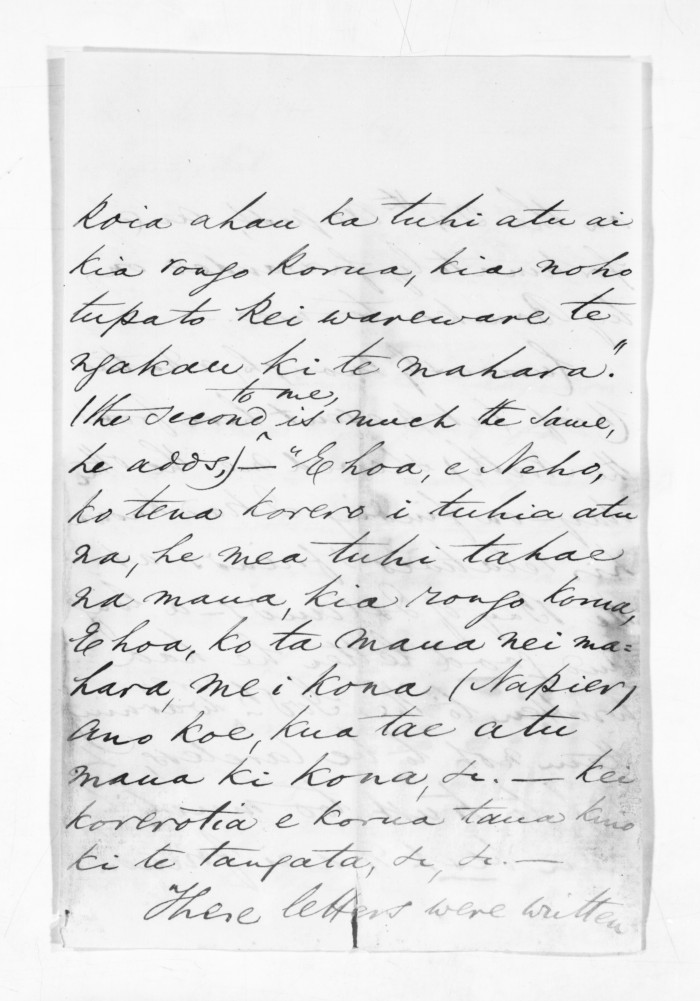 Koia ahau ka tuhi atu ai
kia rongo korua, kia noho
tupato kei wareware te
ngakau ki te mahara".
to me,
(the second is much the same,
he adds,) — "E hoa, e Neho,
ko tena korero i tuhia atu
na, he mea tuhi tahae
na maua, kia rongo korua,
E hoa, ko ta maua nei ma=
hara, me i kona (Napier)
ano koe, kua tae atu
maua ki kona, &c. — kei
korerotia e korua taua kino
ki te tangata, &c, &c. —
These letters were written